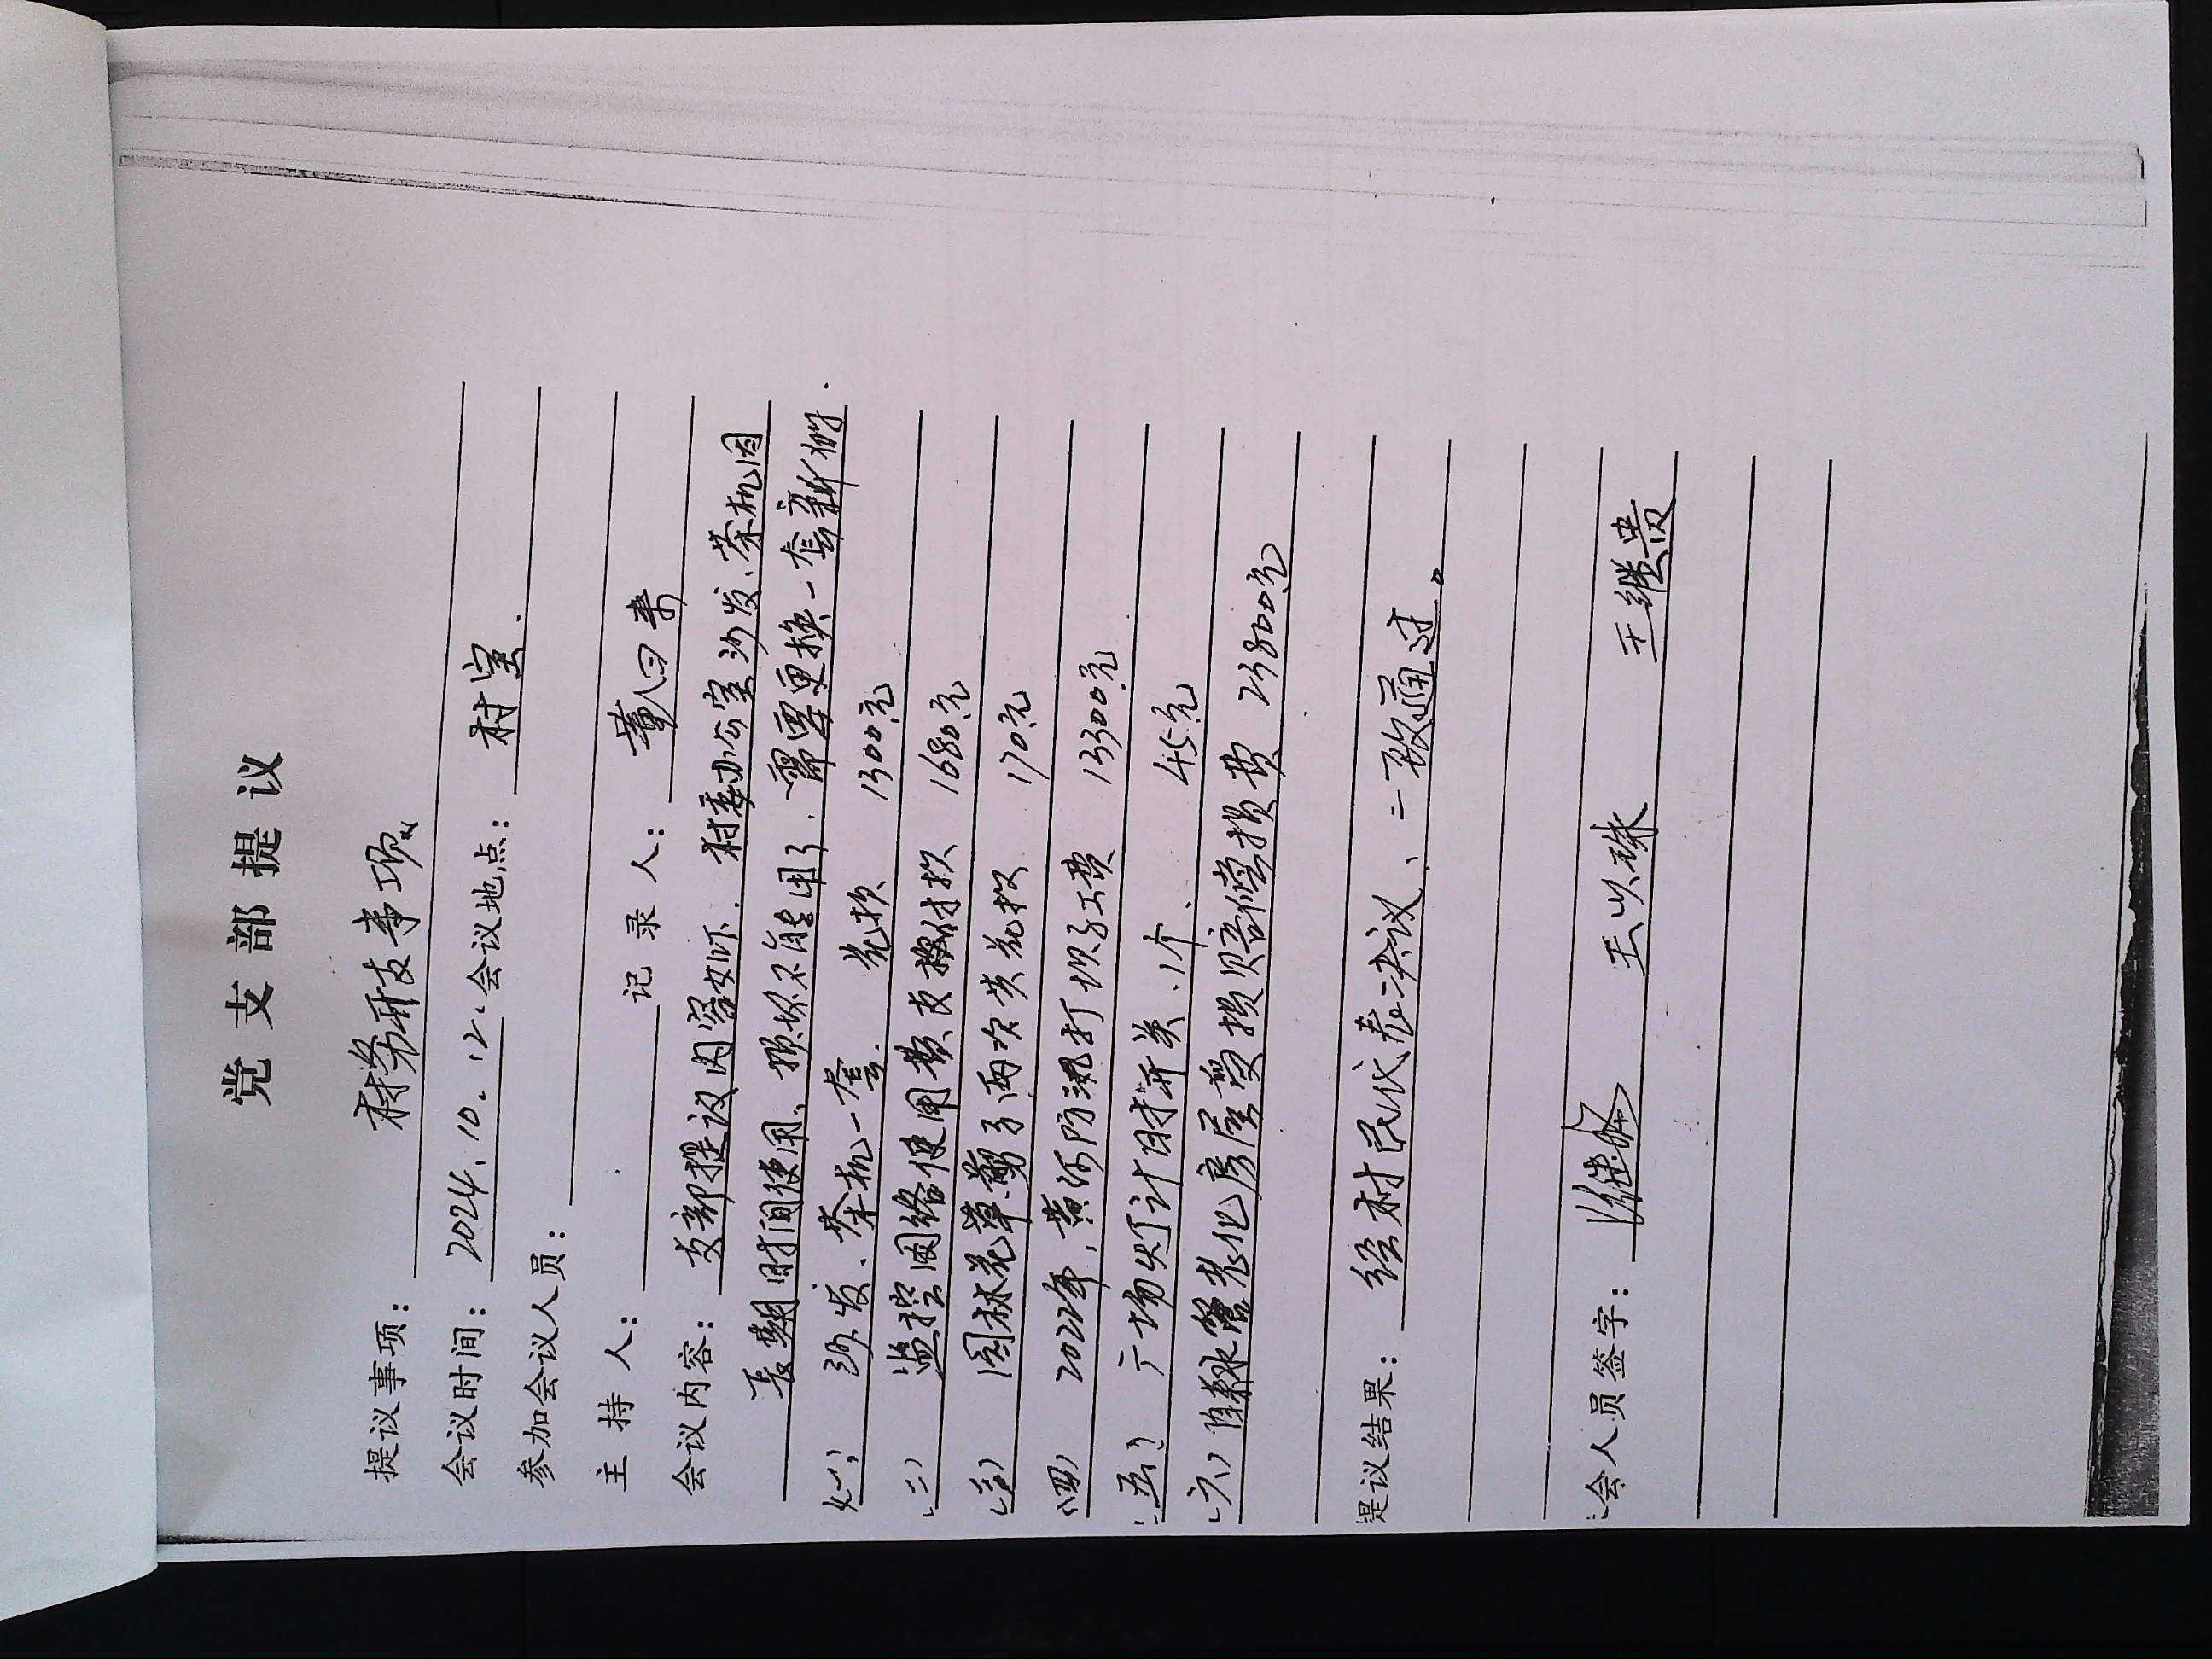 党支部提议
提议事项：村务开支事项
会议时间：2024.10.12.会议地点：村室.
参加会议人员：
主 持 人： 记 录 人：董人日寿
会议内容：支部提议内容如下.村委办公室沙发、茶机因
长期时间使用、损坏不能使用了.需要更换一套新的.
(一) 沙发、茶机一套. 花损 1300元
(二) 监控网络使用费支 1680元
(三) 园林花草剪了两次共花 170元
(四) 2022年，黄河防汛打坝子工费 13300元
(五) 广场灯计时开关、1个、 45元
(六) 管老化房屋受损赔偿损费 23800元
提议结果：经村民代表决议、一致通过。
会人员签字： 王继贵